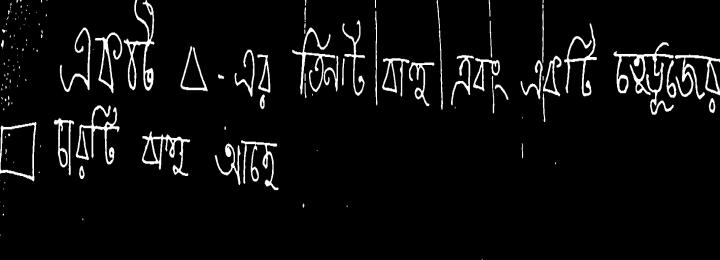 একটি Δ-এর তিনটি বাহু এবং একটি চতুর্ভুজের
□ চারটি বাহু আছে